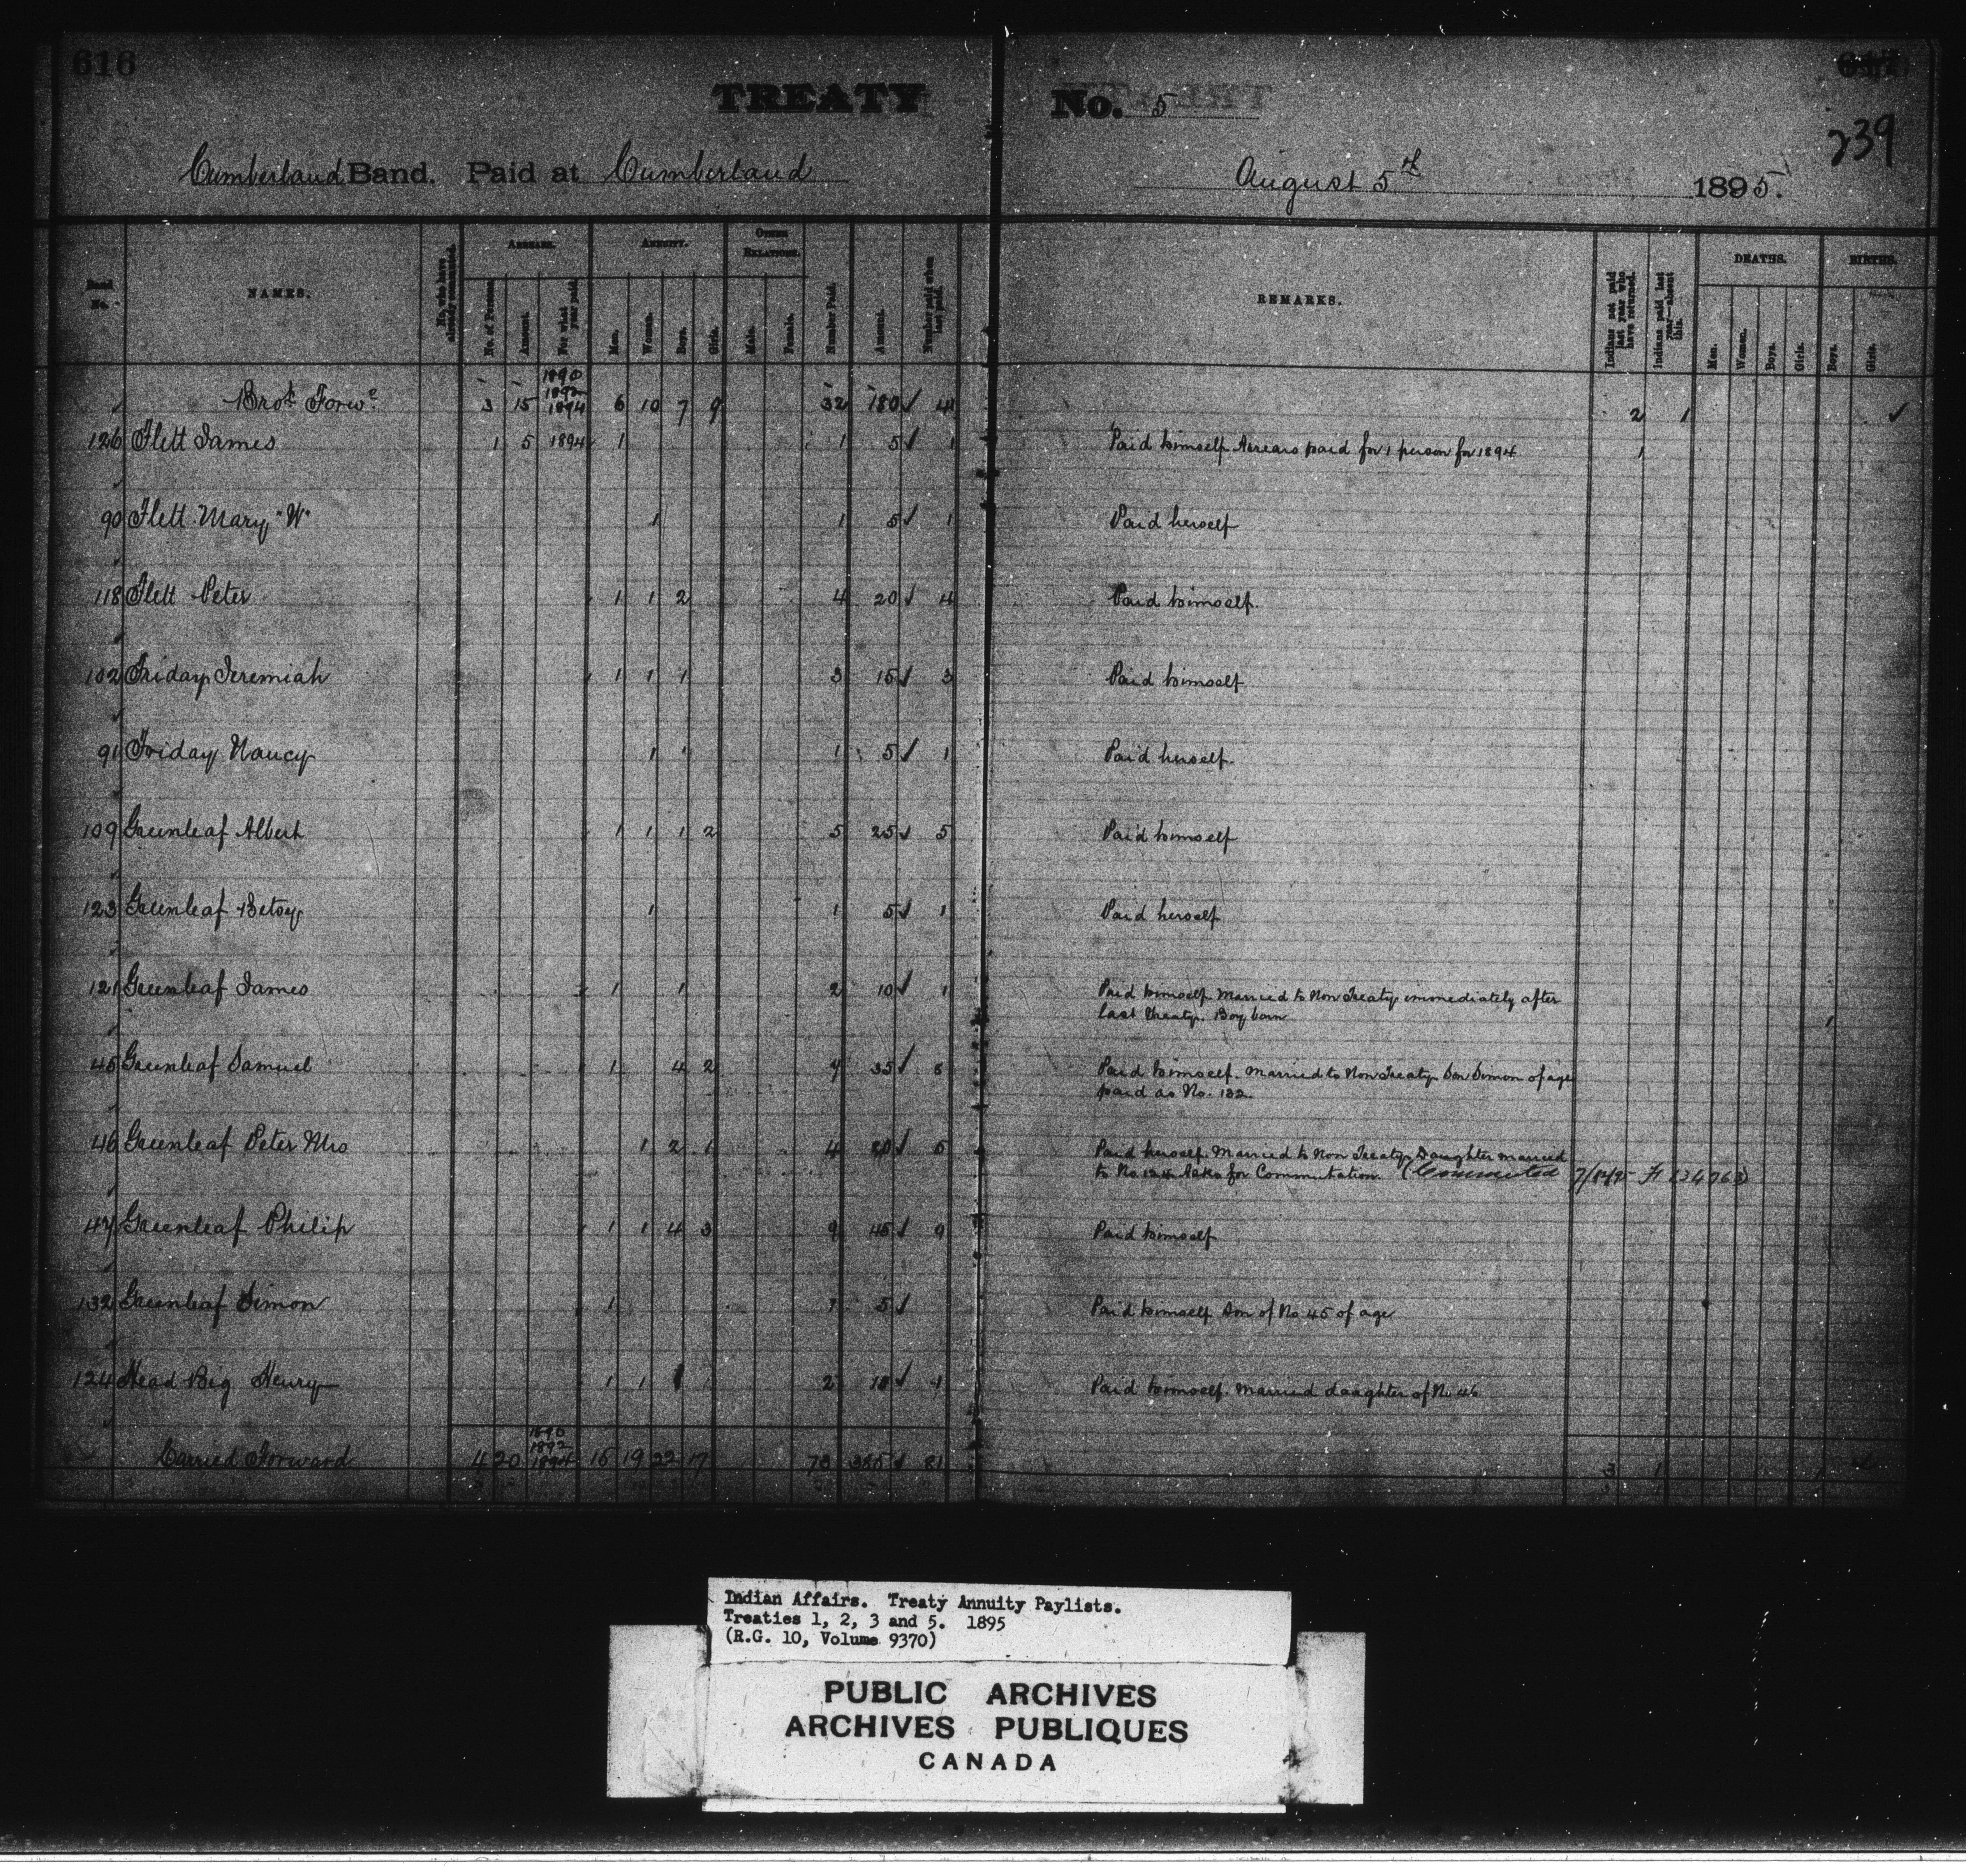 616
TREATY No. 5
239
Cumberland Band. Paid at Cumberland August 5th 1895.
Band No.
NAMES.
No. who have already commuted.
ARREARS.
No. of Persons.
Amount.
For what year paid.
ANNUITY.
Men.
Women.
Boys.
Girls.
OTHER RELATIONS.
Male.
Female.
Number Paid.
Amount.
Number paid when last paid.
REMARKS.
Indians not paid last year who have returned.
Indians paid last year—absent this.
DEATHS.
Men.
Women.
Boys.
Girls.
BIRTHS.
Boys.
Girls.
1890
1892
Brot Forwd 3 15 1894 6 10 7 9 32 180 ✓ 41 2 1 ✓
126 Flett James 1 5 1894 1 1 5 ✓ 1 Paid himself Arrears paid for 1 person for 1894 1
90 Flett Mary "W" 1 1 5 ✓ 1 Paid herself
118 Flett Peter 1 1 2 4 20 ✓ 4 Paid himself.
102 Friday Jeremiah 1 1 1 3 15 ✓ 3 Paid himself
91 Friday Nancy 1 1 5 ✓ 1 Paid herself.
109 Greenleaf Albert 1 1 1 2 5 25 ✓ 5 Paid himself
123 Greenleaf Betsy 1 1 5 ✓ 1 Paid herself
121 Greenleaf James 1 1 2 10 ✓ 1 Paid himself Married to Non Treaty immediately after
last Treaty. Boy born 1
45 Greenleaf Samuel 1 4 2 7 35 ✓ 8 Paid himself. Married to Non Treaty Son Simon of age
paid as No. 132.
46 Greenleaf Peter Mrs 1 2 1 4 20 ✓ 5 Paid herself. Married to Non Treaty Daughter married
to No 124 Asks for Commutation. (Commuted
47 Greenleaf Philip 1 1 4 3 9 45 ✓ 9 Paid himself
132 Greenleaf Simon 1 1 5 ✓ Paid himself Son of No 45 of age
124 Head Big Henry 1 1 2 10 ✓ 1 Paid himself. Married daughter of No 46
1890
1892
Carried Forward 4 20 1894 15 19 22 17 73 385 ✓ 81 3 1 1
Indian Affairs. Treaty Annuity Paylists.
Treaties 1, 2, 3 and 5. 1895
(R.G. 10, Volume 9370)
PUBLIC ARCHIVES
ARCHIVES PUBLIQUES
CANADA